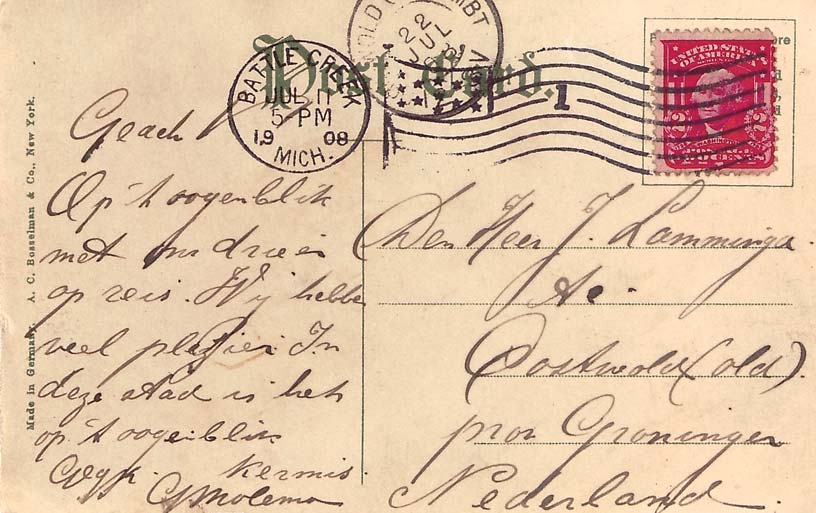 Post Card.
BATTLE CREEK
JUL 11
5 PM
1908
MICH.
22
JUL
1
UNITED STATES
OF AMERICA
WASHINGTON
2 2
TWO CENTS
Made in Germany. A. C. Bosselman & Co., New York.
Geach
Op 't oogenblik
met ons drieën
op reis. Wij hebben
veel plezier. In
deze stad is het
op 't oogenblik
kermis.
G Molema
Den Heer J. Lamminga
Te
Oostwold (old)
prov Groningen
Nederland.